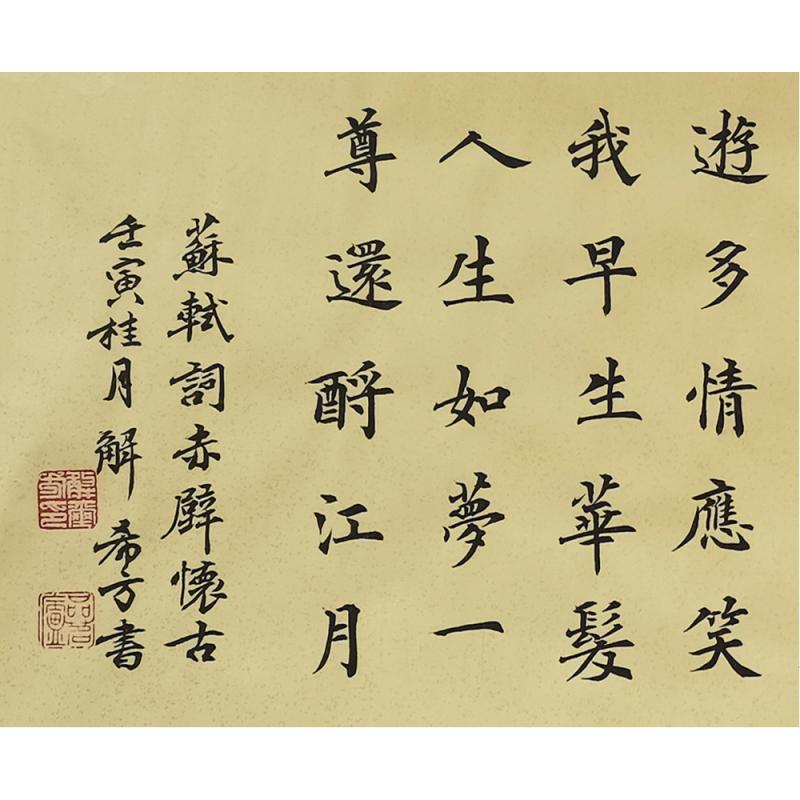 遊多情應笑
我早生華髮
人生如夢一
尊還酹江月
蘇軾詞赤壁懷古
壬寅桂月解希方書